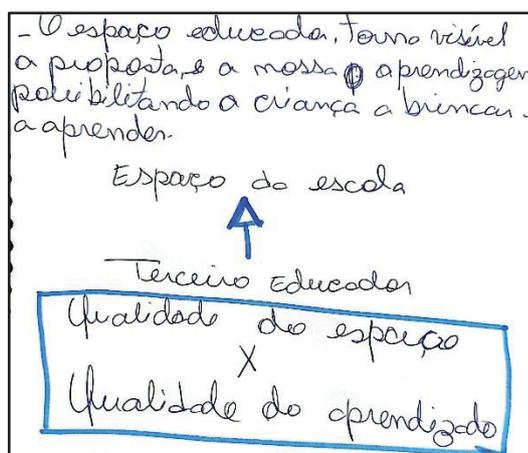 - O espaço educador, torna visível
a proposta, e a nossa aprendizagem
possibilitando a criança a brincar.
a aprender.
Espaço da escola
Terceiro Educador
Qualidade do espaço
X
Qualidade do aprendizado